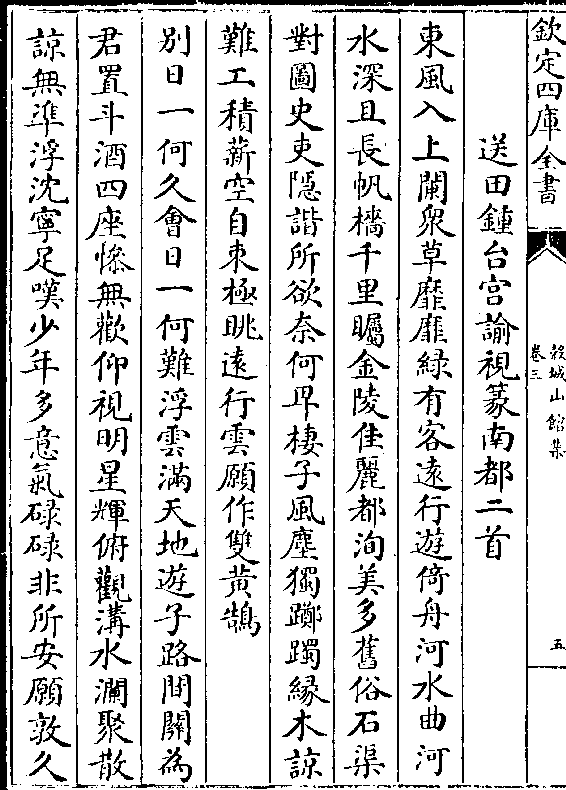 欽定四庫全書
穀城山館集
卷三
五
送田鍾台宫諭視篆南都二首
東風入上闌衆草靡靡緑有客遠行遊倚舟河水曲河
水深且長帆檣千里矚金陵佳麗都洵美多舊俗石渠
對圖史吏隱諧所欲奈何早棲子風塵獨躑躅緣木諒
難工積薪空自束極眺遠行雲願作雙黄鵠
別日一何久會日一何難浮雲滿天地遊子路間關為
君置斗酒四座慘無歡仰視明星輝俯觀溝水瀾聚散
諒無準浮沈寧足嘆少年多意氣碌碌非所安願敦久